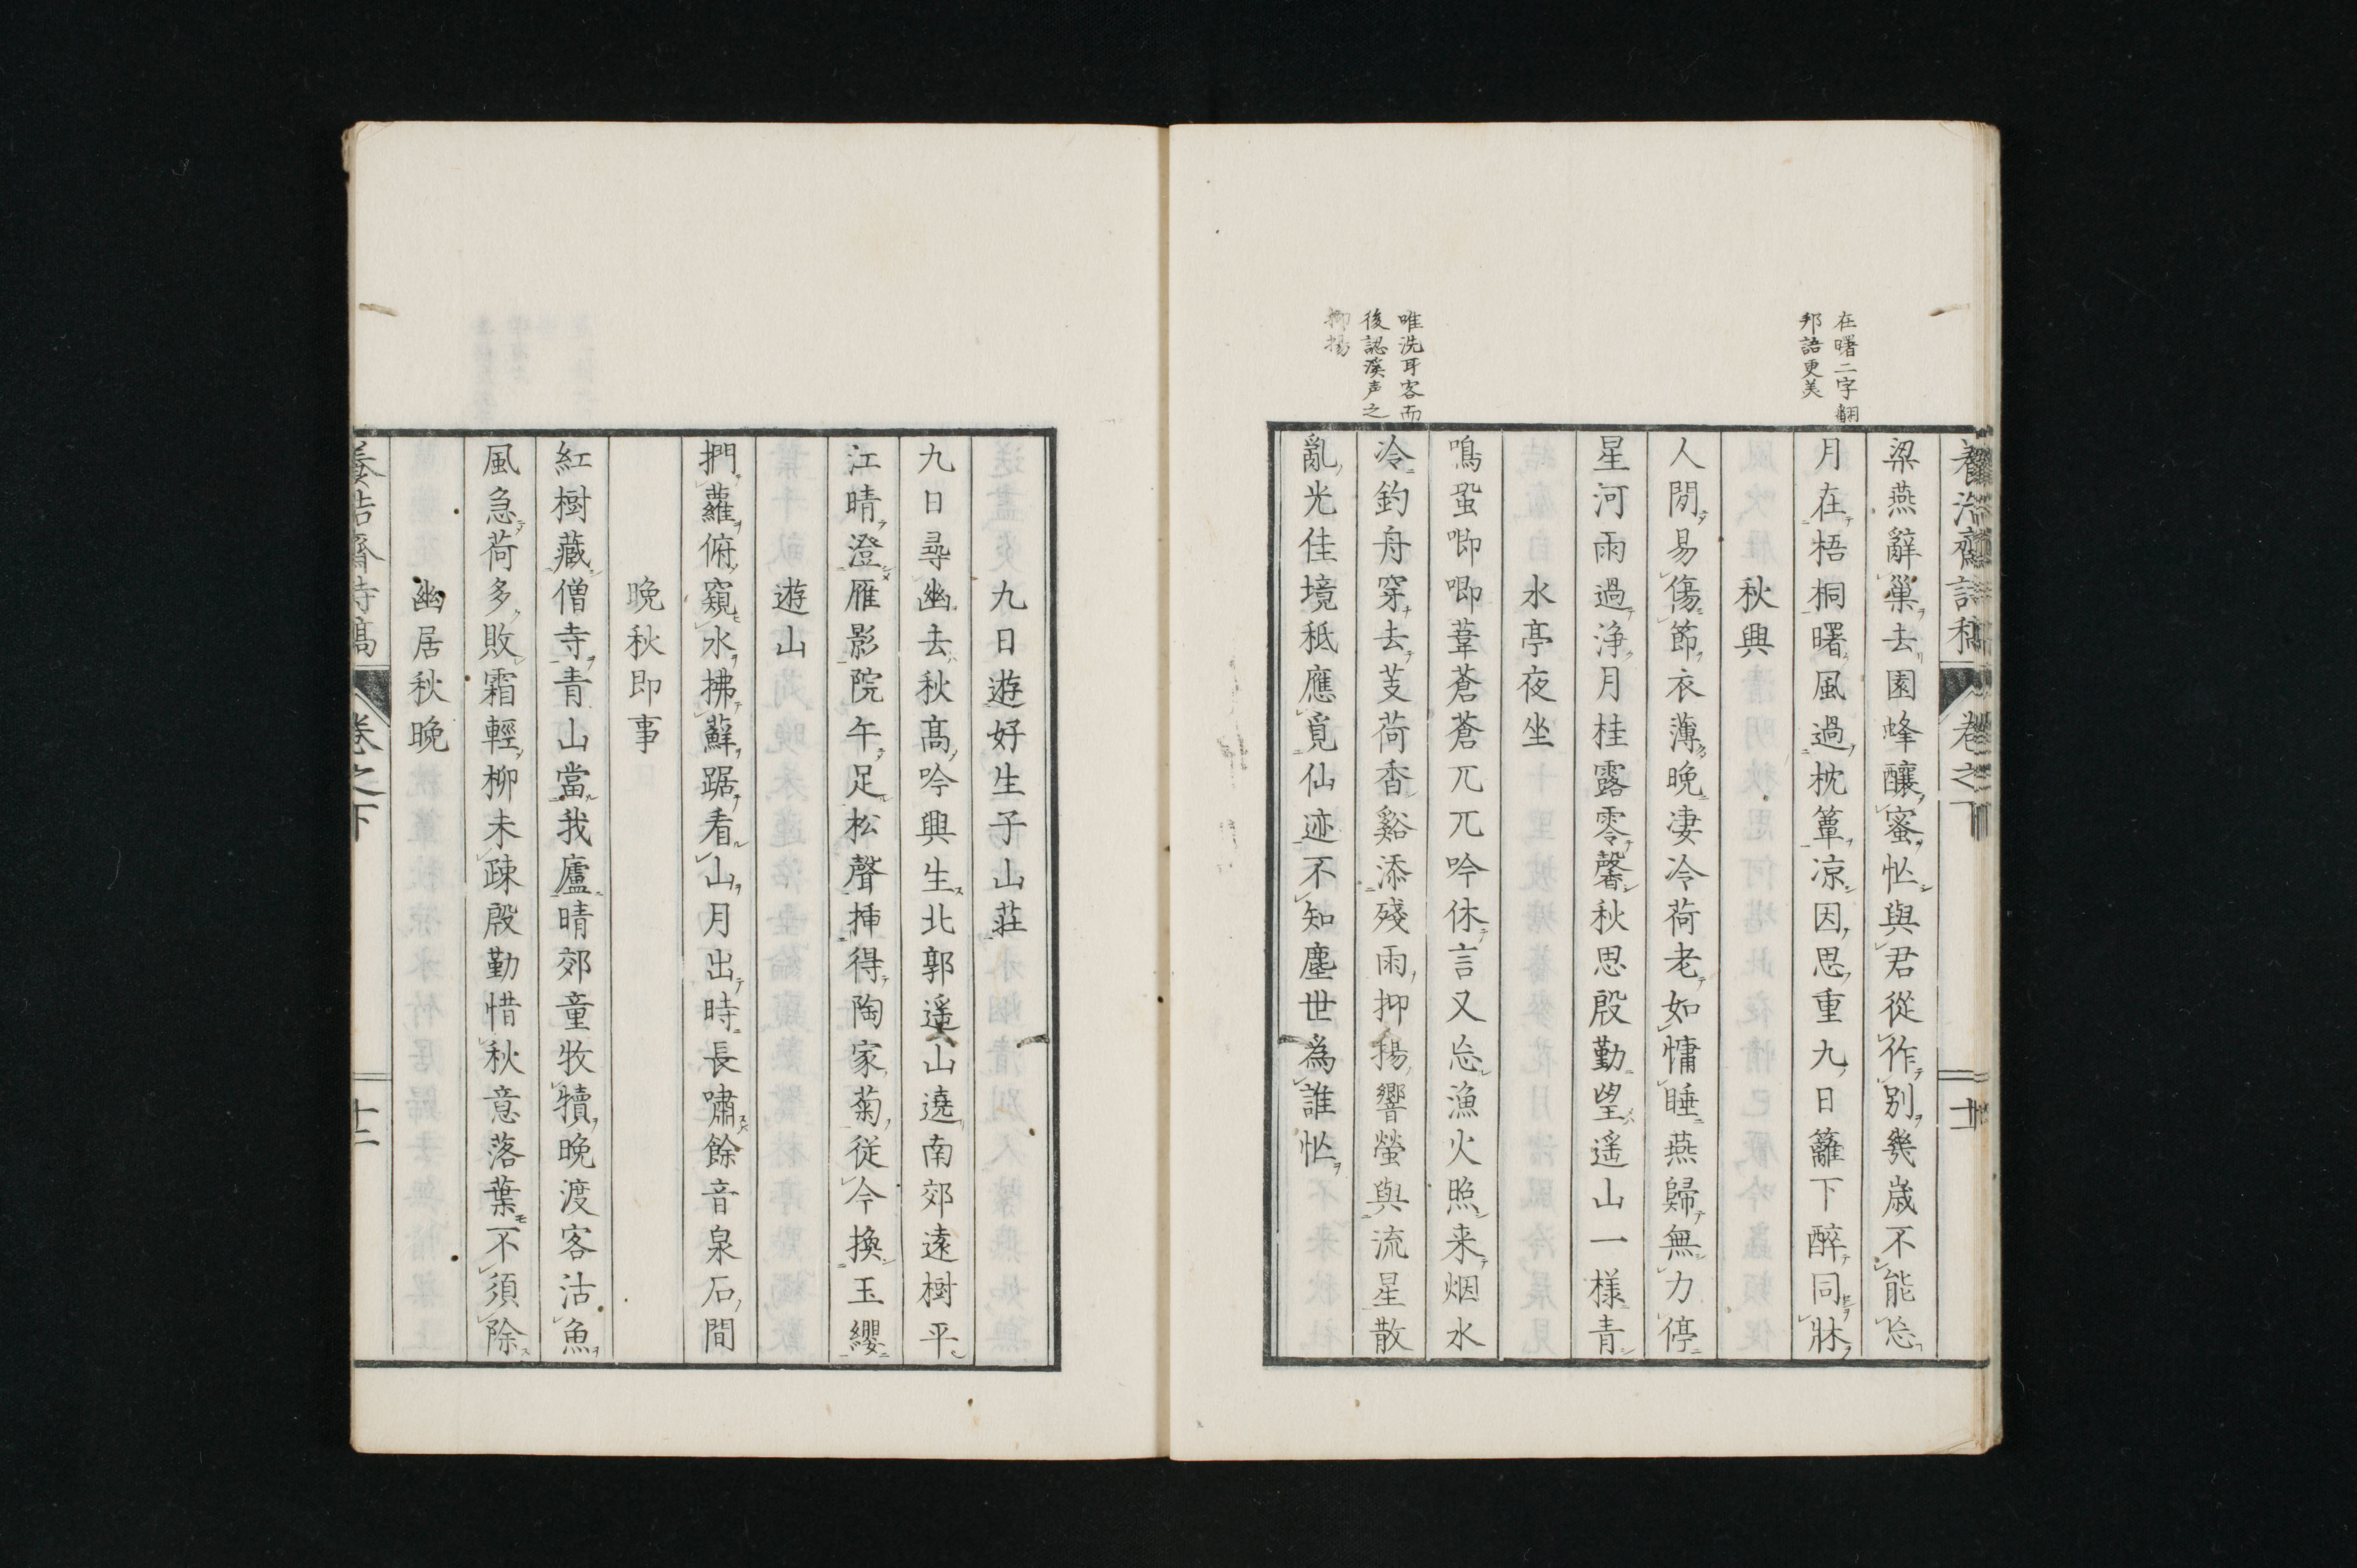 在曙二字翻
邦語更美
唯洗耳客而
後認溪声之
抑揚
卷之下
梁燕辭巢去園蜂釀蜜忙與君從作別幾歳不能忘
月在梧桐曙風過枕簟凉因思重九日籬下醉同牀
秋興
人閒易傷節衣薄晩凄冷荷老如慵睡燕歸無力停
星河雨過淨月桂露零馨秋思殷勤望遥山一様青
水亭夜坐
鳴蛩喞喞葦蒼蒼兀兀吟休言又忘漁火照来烟水
冷釣舟穿去芰荷香谿添殘雨抑揚響螢與流星散
亂光佳境秪應覓仙迹不知塵世為誰忙
九日遊好生子山莊
九日尋幽去秋髙吟興生北郭遥山遶南郊遠樹平
江晴澄雁影院午足松聲挿得陶家菊従今換玉纓
遊山
捫蘿俯窺水拂蘚踞看山月出時長嘯餘音泉石間
晩秋即事
紅樹藏僧寺青山當我廬晴郊童牧犢晩渡客沽魚
風急荷多敗霜輕柳未疎殷勤惜秋意落葉不須除
幽居秋晩
卷之下
十二